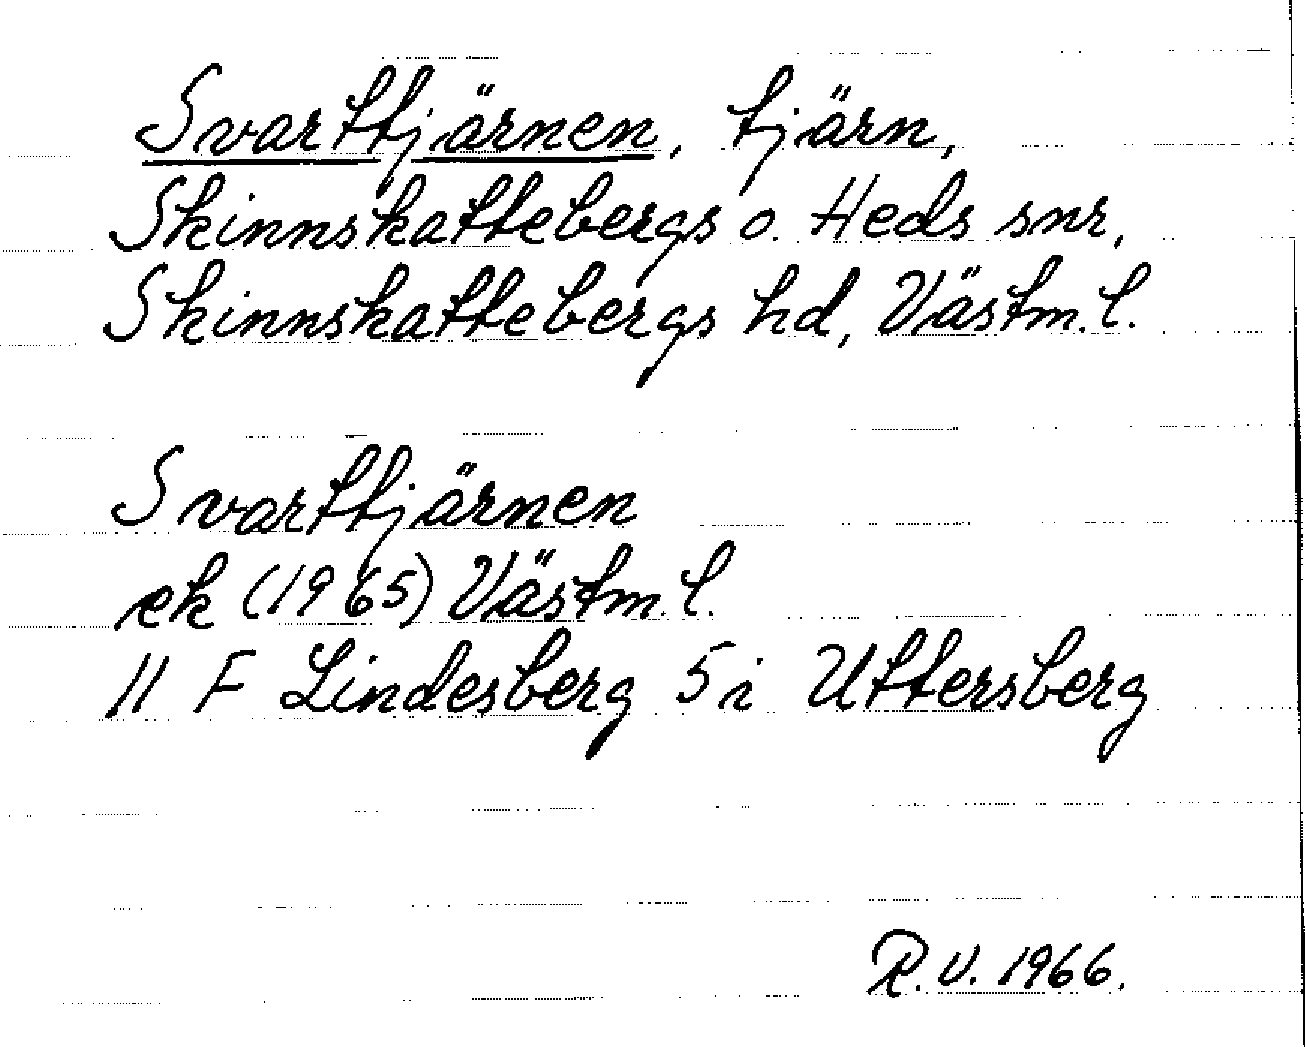 Svarttjärnen, tjärn,
Skinnskattebergs o. Heds snr,
Skinnskattebergs hd, Västm. l.
Svarttjärnen
ek (1965) Västm. l.
11 F Lindesberg 5 i Uttersberg
R.V. 1966.